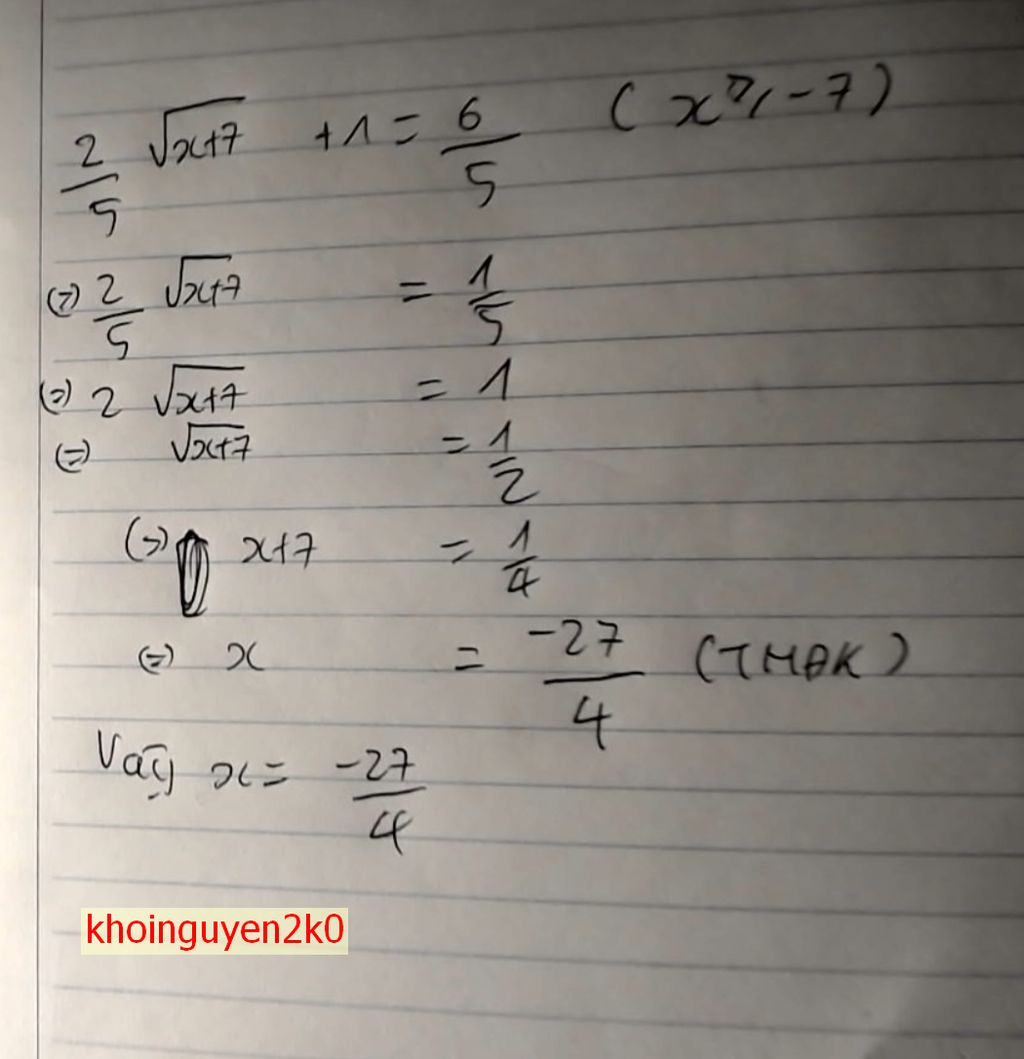 2/5 √x+7 + 1 = 6/5 (x ≥ -7)
(=) 2/5 √x+7 = 1/5
(=) 2 √x+7 = 1
(=) √x+7 = 1/2
(=) x+7 = 1/4
(=) x = -27/4 (TMĐK)
Vậy x = -27/4
khoinguyen2k0